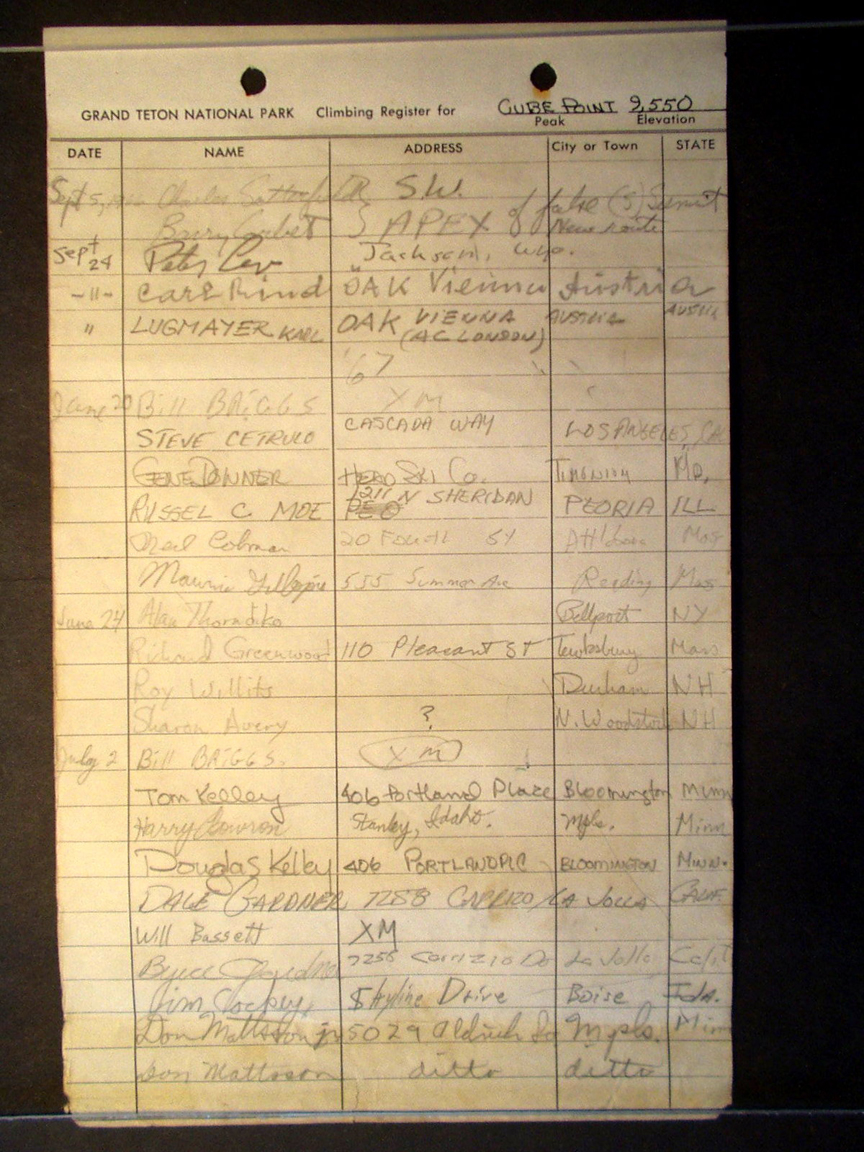 GRAND TETON NATIONAL PARK Climbing Register for CUBE POINT 9,550
Peak Elevation
DATE NAME ADDRESS City or Town STATE
Sept 5, Charles S.W.
Barry Corbet APEX of false (s) Summit
New route
Sept 24 Peter Lev Jackson, Wyo.
-"- Carl ÖAK Vienna Austria
" LUGMAYER KARL OAK VIENNA AUSTRIA AUSTRIA
(AC LONDON)
'67
June 20 Bill BRIGGS XM
STEVE CETRULO CASCADA WAY LOS ANGELES, CAL
GENE DONNER HEAD SKI Co. TIMONIUM MD.
RUSSEL C MOE 1211 N SHERIDAN PEORIA ILL.
PEO
Neil 20 Fourth ST Mas
Maurice 535 Summer Ave Reading Mass
June 24 Alan Thorndike Bellport NY
Richard Greenwood 110 Pleasant ST Tewksbury Mass
Roy Willits Durham NH
Sharon Avery ? N. Woodstock NH
July 2 Bill BRIGGS. XM
Tom Kelley 406 Portland Place Bloomington Minn
Harry Stanley, Idaho. Mpls. Minn
Douglas Kelley 406 PORTLAND PLC BLOOMINGTON MINN.
DALE GARDNER 7258 CARRIZO LA JOLLA CALIF.
Will Bassett XM
Bryce Gardner 7258 Carrizo Dr La Jolla Calif
Jim Skyline Drive Boise Ida.
Don Mattson jr 5029 Aldrich So Mpls. Minn
Don Mattsson ditto ditto